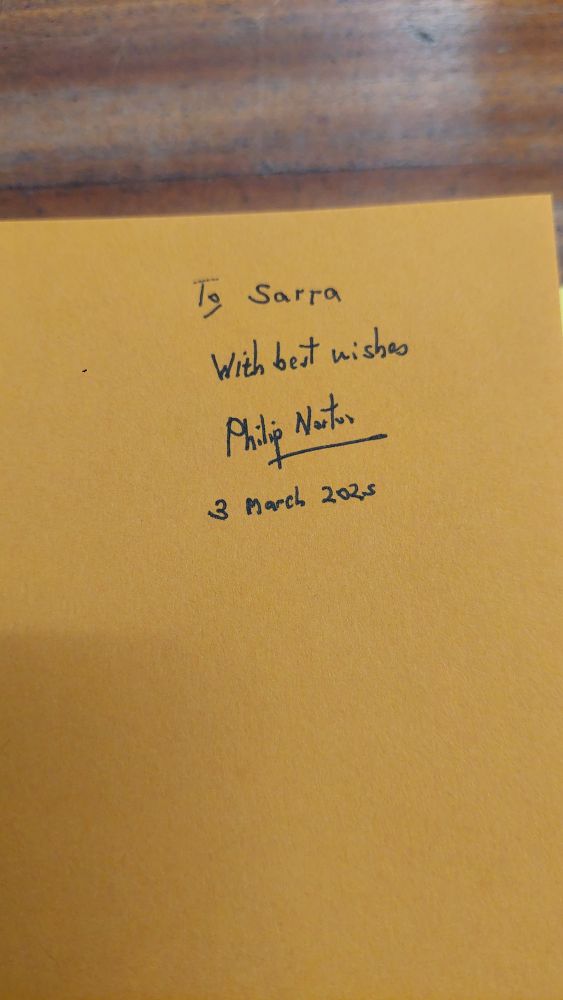 To Sarra
With best wishes
Philip Norton
3 March 2025